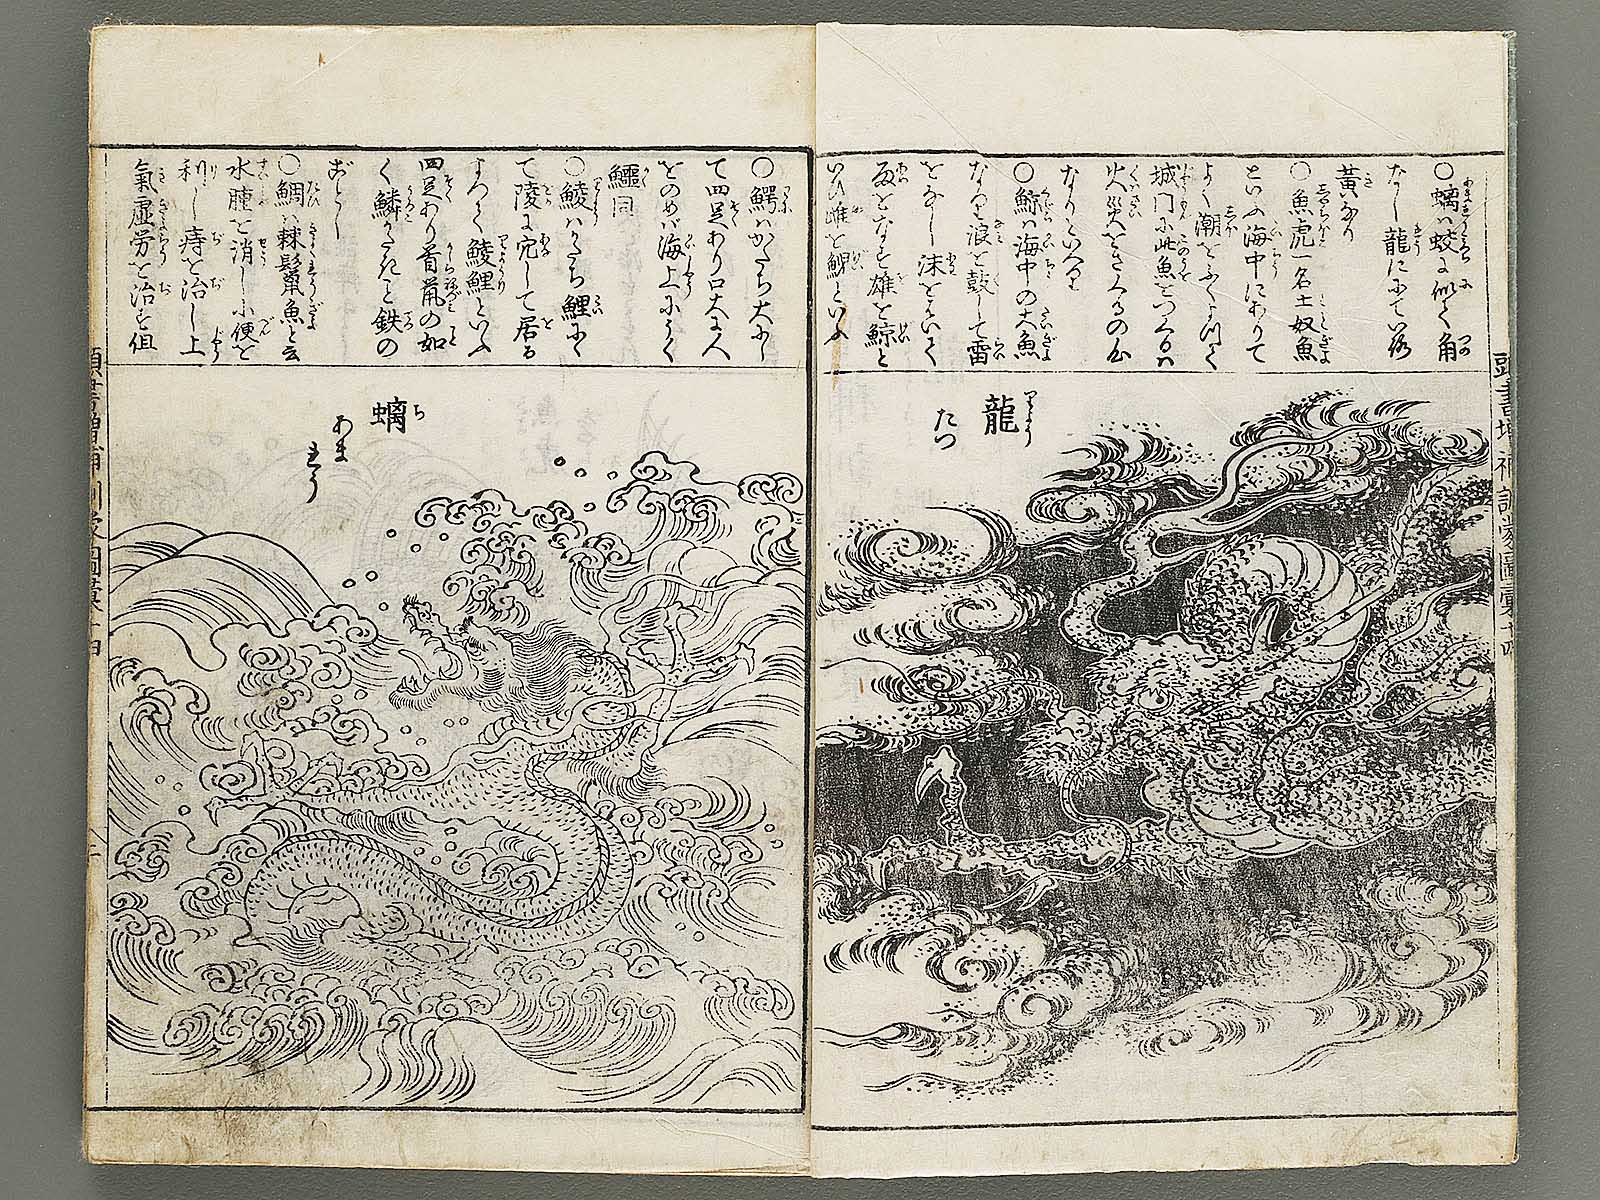 ○螭ハ蛟に似て角
なし龍ににて色
黄なり
○魚虎一名土奴魚
といふ海中にありて
よく潮をふくよつて
城門に此魚をつくるハ
火災をさくるの心
なりといへり
○鯨ハ海中の大魚
なり浪を鼓して雷
をなし沫をはいて
雨をなす雄を鯨と
いひ雌を鯢といふ
龍
りょう
たつ
○鰐ハかたち大にし
て四足あり口大に人
をのめバ海上にうく
鱷同
○鯪ハかたち鯉にに
て陵に穴して居る
よつて鯪鯉といふ
四足あり首鼠の如
く鱗かたきこと鉄の
ごとし
○鯛ハ棘鬣魚と云
水腫を消し小便を
利し痔を治し上
氣虚労を治す但
螭
ち
あま
りう
頭書増補訓蒙圖彙十四